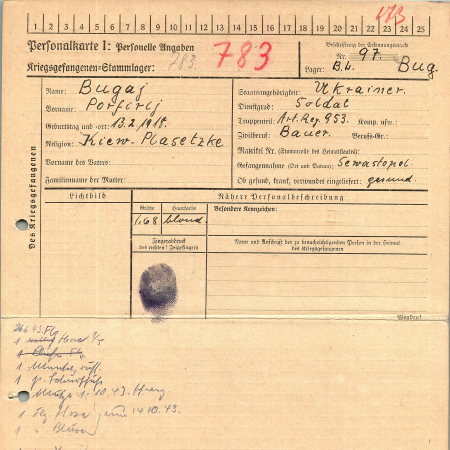 173
1 2 3 4 5 6 7 8 9 10 11 12 13 14 15 16 17 18 19 20 21 22 23 24 25
Personalkarte I: Personelle Angaben
783. 783
Kriegsgefangenen-Stammlager:
Beschriftung der Erkennungsmarke
Nr. 97.
Lager: Bug.
Des Kriegsgefangenen
Name: Bugaj
Vorname: Porfirij
Geburtstag und -ort: 13.2.1918.
Religion: Kiew. Plasetzke
Vorname des Vaters:
Familienname der Mutter:
Staatsangehörigkeit: Ukrainer.
Dienstgrad: Soldat
Truppenteil: Art. Reg. 953. Komp. usw.:
Zivilberuf: Bauer. Berufs-Gr.:
Matrikel Nr. (Stammrolle des Heimatstaates):
Gefangennahme (Ort und Datum): Sewastopol.
Ob gesund, krank, verwundet eingeliefert: gesund.
Lichtbild
Nähere Personalbeschreibung
Größe Haarfarbe Besondere Kennzeichen:
1.68 blond.
Fingerabdruck
des rechten (!) Zeigefingers
Name und Anschrift der zu benachrichtigenden Person in der Heimat
des Kriegsgefangenen
Wenden!
1 Hose
1
1 Mantel
1
1 Mütze 1.10.43.
1 Hose 14.10.43.
1 " Bluse